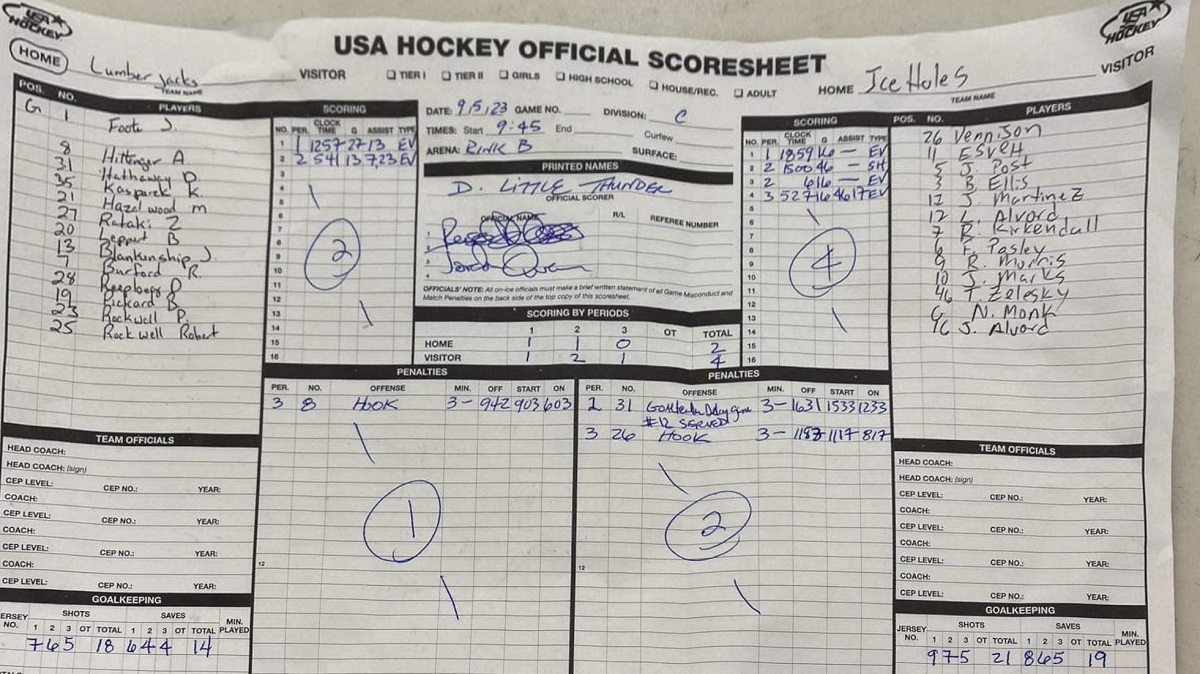 USA HOCKEY
USA HOCKEY
USA HOCKEY OFFICIAL SCORESHEET
HOME Lumberjacks VISITOR
TEAM NAME
☐ TIER I ☐ TIER II ☐ GIRLS ☐ HIGH SCHOOL ☐ HOUSE/REC. ☐ ADULT
HOME Ice Holes VISITOR
TEAM NAME
POS. NO. PLAYERS
G 1 Foote J.
8 Hittenger A
31 Hathaway D.
35 Kasparek K.
21 Hazelwood m
27 Rataki Z
20 Leppert B
13 Blankinship J.
7 Burford R.
28 D
19 Rickard B
23 Rockwell P.
25 Rockwell Robert
SCORING
NO. PER. CLOCK TIME G ASSIST TYPE
1 1 1257 27 13 EV
2 2 541 13 7,23 EV
3
4
5
6
7
8
9
10
11
12
13
14
15
16
2
DATE: 9/5/23 GAME NO. DIVISION: C
TIMES: Start 9:45 End Curfew
ARENA: RINK B SURFACE:
PRINTED NAMES
D. LITTLE THUNDER
OFFICIAL SCORER
OFFICIAL NAME R/L REFEREE NUMBER
1
2
3
4
OFFICIALS' NOTE: All on-ice officials must make a brief written statement of all Game Misconduct and
Match Penalties on the back side of the top copy of this scoresheet.
SCORING BY PERIODS
1 2 3 OT TOTAL
HOME 1 1 0 2
VISITOR 1 2 1 4
SCORING
NO. PER. CLOCK TIME G ASSIST TYPE
1 1 1859 16 — EV
2 2 1500 46 — SH
3 2 6 16 — EV
4 3 527 16 46 17 EV
5
6
7
8
9
10
11
12
13
14
15
16
4
POS. NO. PLAYERS
26 Vennison
11 Esveh
5 J. Post
3 B. Ellis
12 J. Martinez
17 L. Alvord
7 R. Kirkendall
F. Pasley
9 R. Morris
10 J. Marks
46 T. Zelesky
G N. Monk
16 J. Alvord
PENALTIES
PER. NO. OFFENSE MIN. OFF START ON
3 8 HOOK 3— 942 903 603
1
12
PENALTIES
PER. NO. OFFENSE MIN. OFF START ON
2 31 Goaltender Delay game 3— 1631 1533 1233
#12 SERVED
3 26 HOOK 3— 1117 817
2
12
TEAM OFFICIALS
HEAD COACH:
HEAD COACH: (sign)
CEP LEVEL: CEP NO.: YEAR:
COACH:
CEP LEVEL: CEP NO.: YEAR:
COACH:
CEP LEVEL: CEP NO.: YEAR:
COACH:
CEP LEVEL: CEP NO.: YEAR:
GOALKEEPING
JERSEY NO. SHOTS 1 2 3 OT TOTAL SAVES 1 2 3 OT TOTAL MIN. PLAYED
7 6 5 18 6 4 4 14
TEAM OFFICIALS
HEAD COACH:
HEAD COACH: (sign)
CEP LEVEL: CEP NO.: YEAR:
COACH:
CEP LEVEL: CEP NO.: YEAR:
COACH:
CEP LEVEL: CEP NO.: YEAR:
COACH:
CEP LEVEL: CEP NO.: YEAR:
GOALKEEPING
JERSEY NO. SHOTS 1 2 3 OT TOTAL SAVES 1 2 3 OT TOTAL MIN. PLAYED
9 7 5 21 8 6 5 19